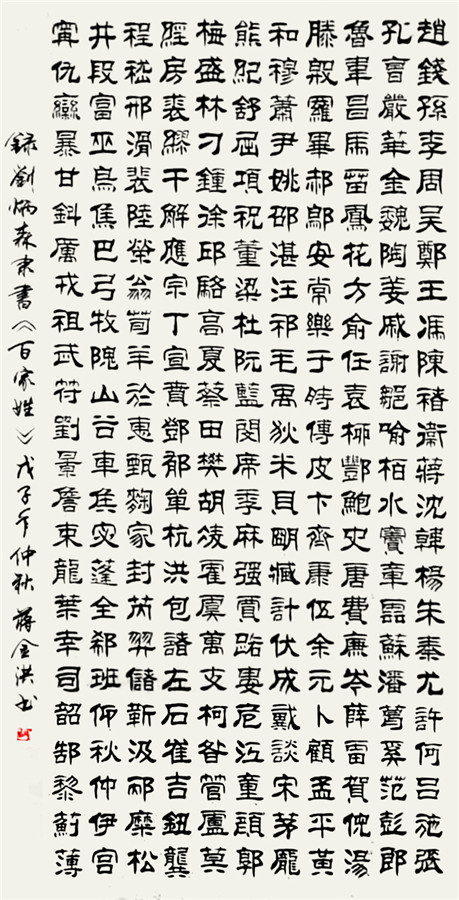 趙錢孫李周吳鄭王馮陳褚衛蔣沈韓楊朱秦尤許何呂施張
孔曹嚴華金魏陶姜戚謝鄒喻柏水竇章雲蘇潘葛奚范彭郎
魯韋昌馬苗鳳花方俞任袁柳酆鮑史唐費廉岑薛雷賀倪湯
滕殷羅畢郝鄔安常樂于時傅皮卞齊康伍余元卜顧孟平黃
和穆蕭尹姚邵湛汪祁毛禹狄米貝明臧計伏成戴談宋茅龐
熊紀舒屈項祝董梁杜阮藍閔席季麻強賈路婁危江童顏郭
梅盛林刁鍾徐邱駱高夏蔡田樊胡凌霍虞萬支柯昝管盧莫
經房裘繆干解應宗丁宣賁鄧郁單杭洪包諸左石崔吉鈕龔
程嵇邢滑裴陸榮翁荀羊於惠甄麴家封芮羿儲靳汲邴糜松
井段富巫烏焦巴弓牧隗山谷車侯宓蓬全郗班仰秋仲伊宮
甯仇欒暴甘鈄厲戎祖武符劉景詹束龍葉幸司韶郜黎薊薄
錄劉炳森隶書《百家姓》戊子年仲秋 蔣金洪书